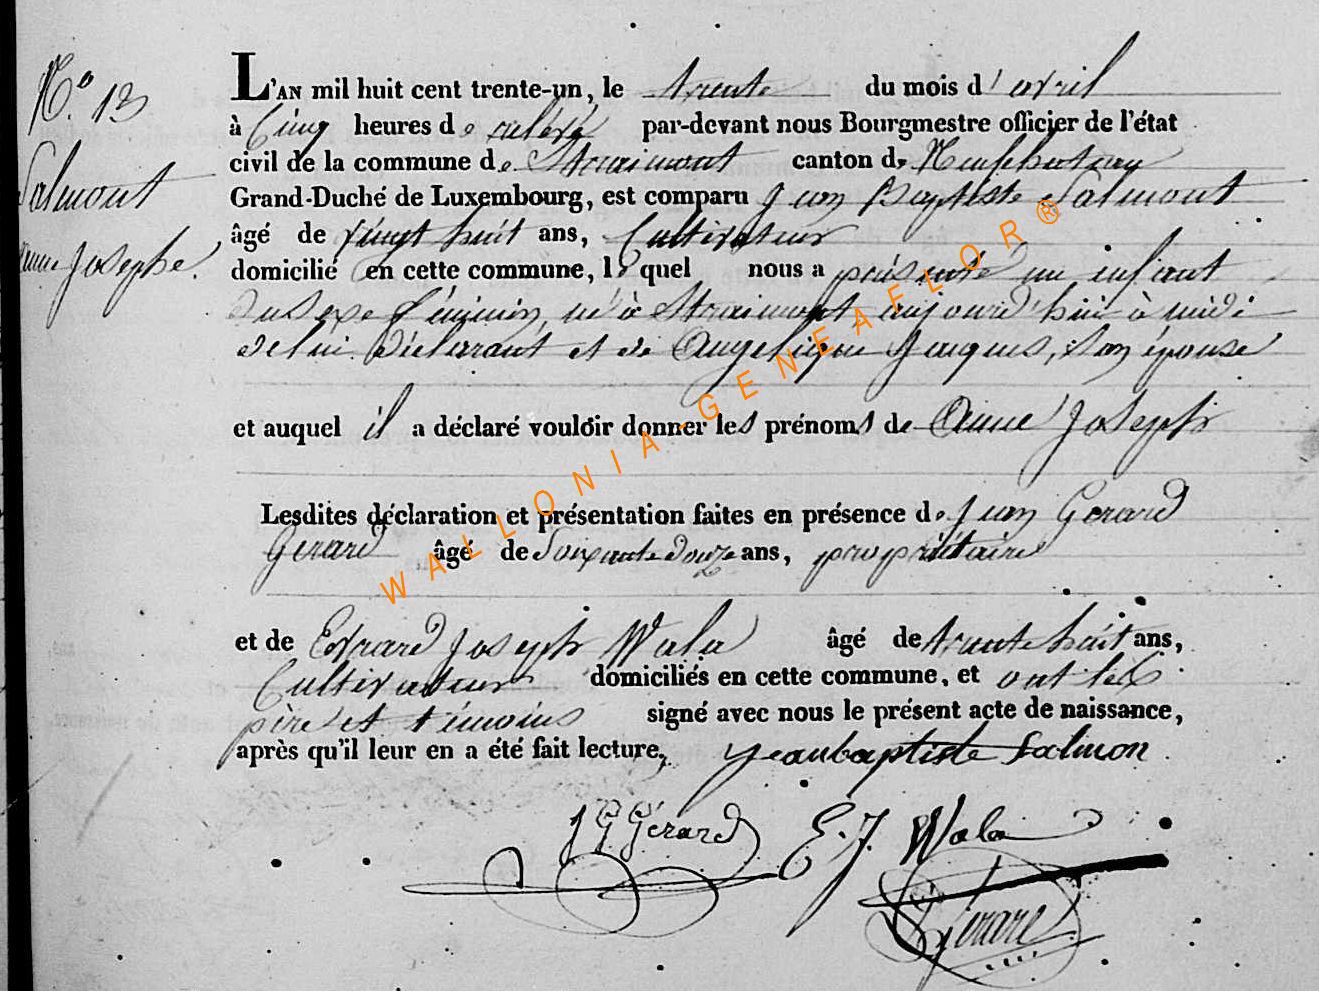 N.º 13
Salmont
anne Josephe.
L'AN mil huit cent trente-un, le trente du mois d'avril
à Cinq heures de relevé par-devant nous Bourgmestre officier de l'état
civil de la commune de Straimont canton de Neufchateau
Grand-Duché de Luxembourg, est comparu Jean Baptiste Salmont
âgé de vingt huit ans, Cultivateur
domicilié en cette commune, lequel nous a présenté un enfant
du sexe féminin, né à Straimont, aujourd'hui à midi
de lui déclarant et de Angelique Jaques, son épouse
et auquel il a déclaré vouloir donner les prénoms de Anne Joseph
Lesdites déclaration et présentation faites en présence de Jean Gerard
Gerard âgé de Soixante douze ans, propriétaire
et de Evrard Joseph Wala âgé de trente huit ans,
Cultivateur domiciliés en cette commune, et ont les
père et témoins signé avec nous le présent acte de naissance,
après qu'il leur en a été fait lecture,
Jeanbaptiste Salmon
J G Gérard E. J. Wala
Gérard
WALLONIA-GENEAFLOR®